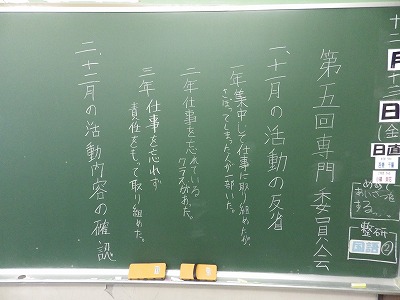 十二月十三日(金)
日直
めあて
あいさつを
する。
整研
国語②
第五回専門委員会
一、十一月の活動の反省
一年集中して仕事に取り組めたが、
さぼってしまった人が一部いた。
二年仕事を忘れている
クラスがあった。
三年仕事を忘れず
責任をもって取り組めた。
二、十二月の活動内容の確認